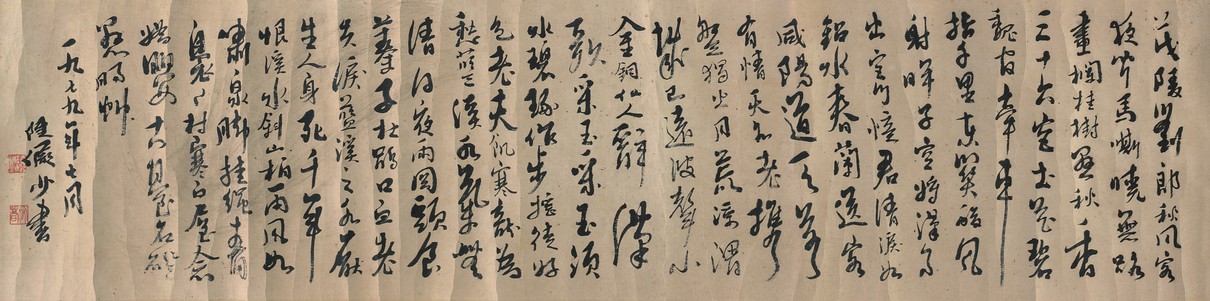 茂陵劉郎秋風客
夜聞馬嘶曉無跡
畫欄桂樹懸秋香
三十六宮土花碧
魏官牽車
指千里東關酸風
射眸子空將漢月
出宮門憶君清淚如
鉛水衰蘭送客
咸陽道天若
有情天亦老攜
盤獨出月荒涼渭
城已遠波聲小
金銅仙人辭漢
歌采玉采玉須
水碧琢作步搖徒好
色老夫飢寒龍為
愁藍溪水氣無
清白夜雨岡頭食
蓁子杜鵑口血老
夫淚藍溪之水厭
生人身死千年
恨溪水斜山柏雨風如
嘯泉腳挂繩青裊
裊村寒白屋念
嬌嬰古臺石磴
懸腸草
一九七九年七月
陸儼少書